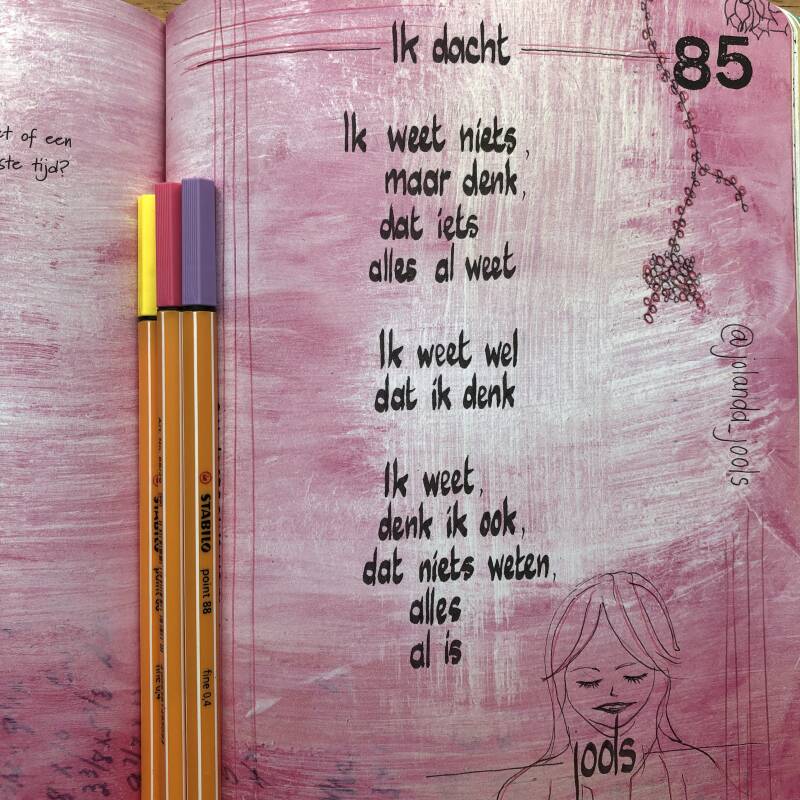 et of een
ste tijd?
Ik dacht
85
Ik weet niets,
maar denk,
dat iets
alles al weet
Ik weet wel
dat ik denk
Ik weet,
denk ik ook,
dat niets weten,
alles
al is
@jolanda_jools
jools
STABILO point 88 fine 0,4
STABILO